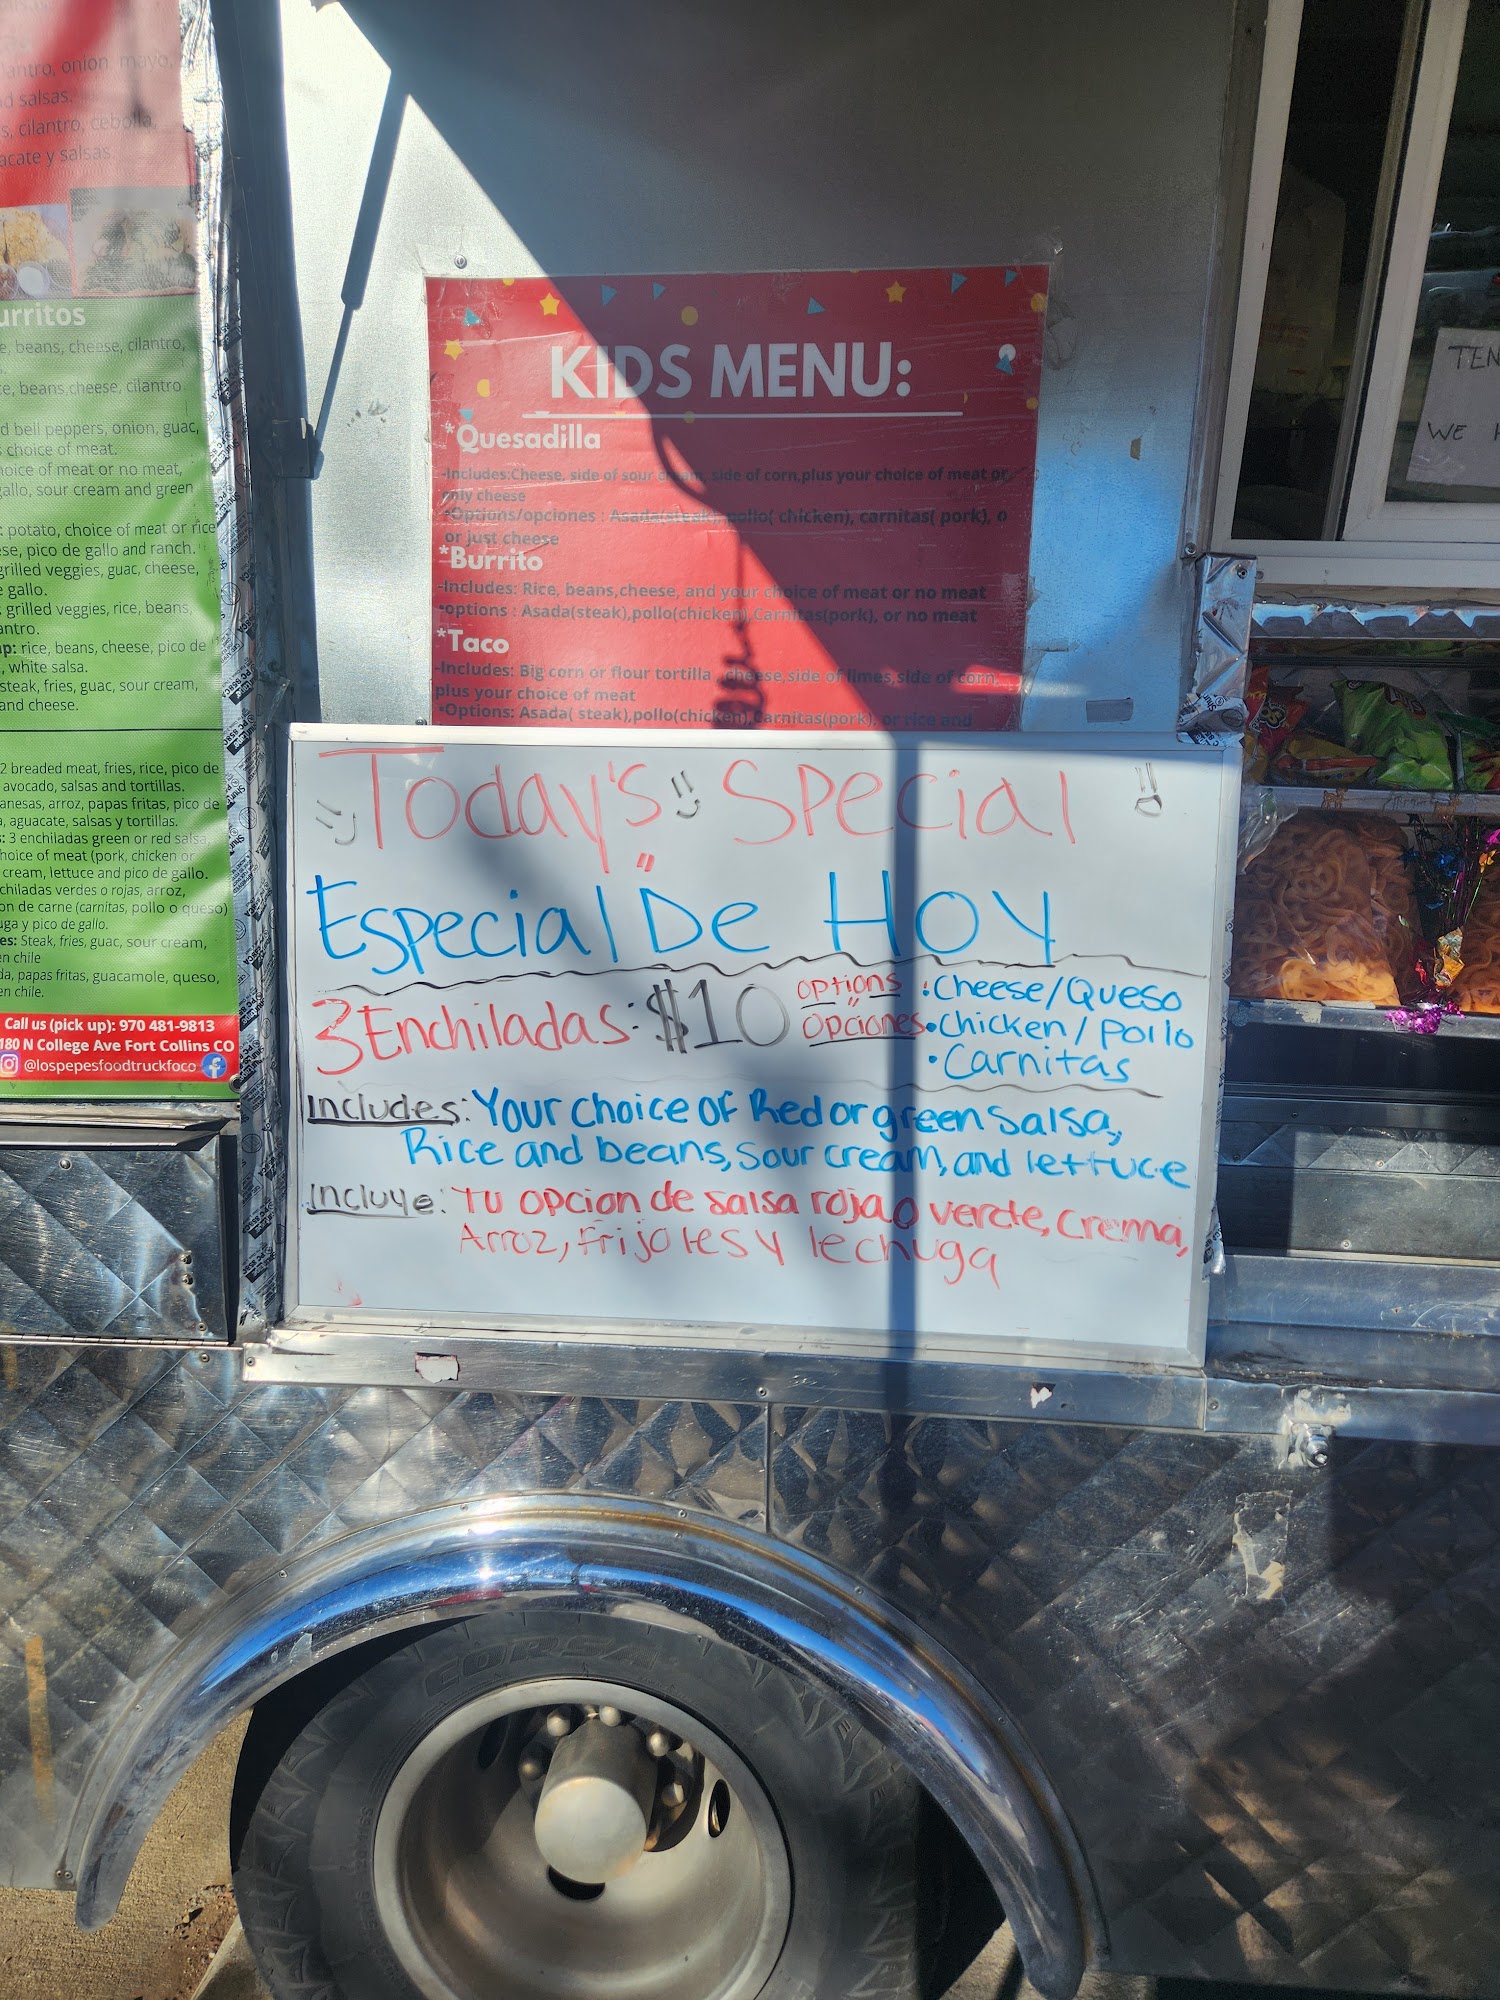 antro, onion, mayo,
d salsas.
s, cilantro, cebolla,
acate y salsas.
urritos
e, beans, cheese, cilantro,
ce, beans,cheese, cilantro
d bell peppers, onion, guac,
choice of meat.
hoice of meat or no meat,
gallo, sour cream and green
: potato, choice of meat or rice
ese, pico de gallo and ranch.
grilled veggies, guac, cheese,
e gallo.
: grilled veggies, rice, beans,
antro.
ap: rice, beans, cheese, pico de
, white salsa.
steak, fries, guac, sour cream,
and cheese.
2 breaded meat, fries, rice, pico de
avocado, salsas and tortillas.
anesas, arroz, papas fritas, pico de
, aguacate, salsas y tortillas.
s: 3 enchiladas green or red salsa,
hoice of meat (pork, chicken or
cream, lettuce and pico de gallo.
chiladas verdes o rojas, arroz,
on de carne (carnitas, pollo o queso)
uga y pico de gallo.
es: Steak, fries, guac, sour cream,
en chile
da, papas fritas, guacamole, queso,
en chile.
Call us (pick up): 970 481-9813
180 N College Ave Fort Collins CO
@lospepesfoodtruckfoco
KIDS MENU:
*Quesadilla
-Includes:Cheese, side of sour cream, side of corn,plus your choice of meat or
only cheese
*Options/opciones : Asada(steak), pollo( chicken), carnitas( pork), o
or just cheese
*Burrito
-Includes: Rice, beans,cheese, and your choice of meat or no meat
*options : Asada(steak),pollo(chicken),Carnitas(pork), or no meat
*Taco
-Includes: Big corn or flour tortilla , cheese,side of limes,side of corn,
plus your choice of meat
*Options: Asada( steak),pollo(chicken),Carnitas(pork), or rice and
TEN
WE
Today's Special
Especial De Hoy
3 Enchiladas: $10
options
opciones
: Cheese/Queso
• Chicken/pollo
• Carnitas
Includes: Your choice of Red or green salsa,
Rice and beans, sour cream, and lettuce
Incluye: Tu opcion de salsa roja o verde, crema,
Arroz, frijoles y lechuga
CORSA